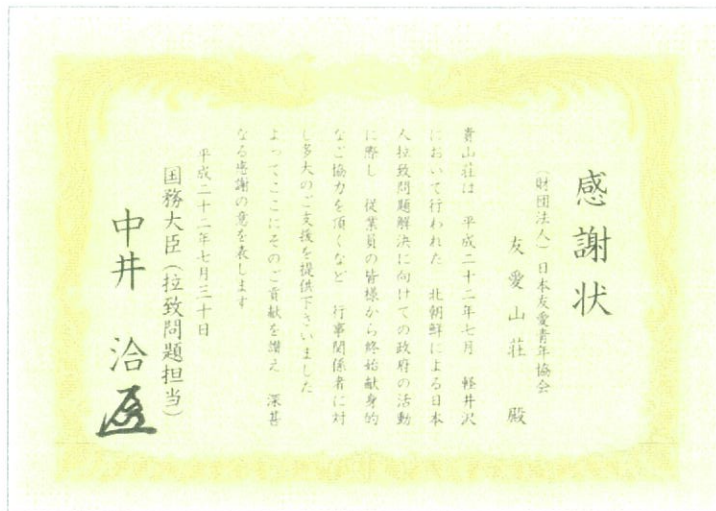 感謝状
(財団法人)日本友愛青年協会
友愛山荘 殿
貴山荘は 平成二十二年七月 軽井沢
において行われた 北朝鮮による日本
人拉致問題解決に向けての政府の活動
に際し 従業員の皆様から終始献身的
なご協力を頂くなど 行事関係者に対
し多大のご支援を提供下さいました
よってここにそのご貢献を讃え 深甚
なる感謝の意を表します
平成二十二年七月三十日
国務大臣(拉致問題担当)
中井 洽